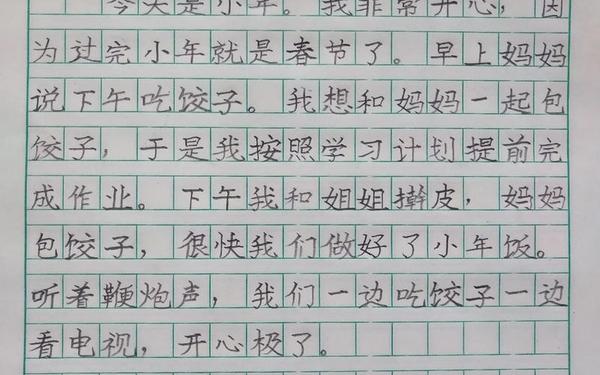 今天是小年。我非常开心，因
为过完小年就是春节了。早上妈妈
说下午吃饺子。我想和妈妈一起包
饺子，于是我按照学习计划提前完
成作业。下午我和姐姐擀皮，妈妈
包饺子，很快我们做好了小年饭。
听着鞭炮声，我们一边吃饺子一边
看电视，开心极了。